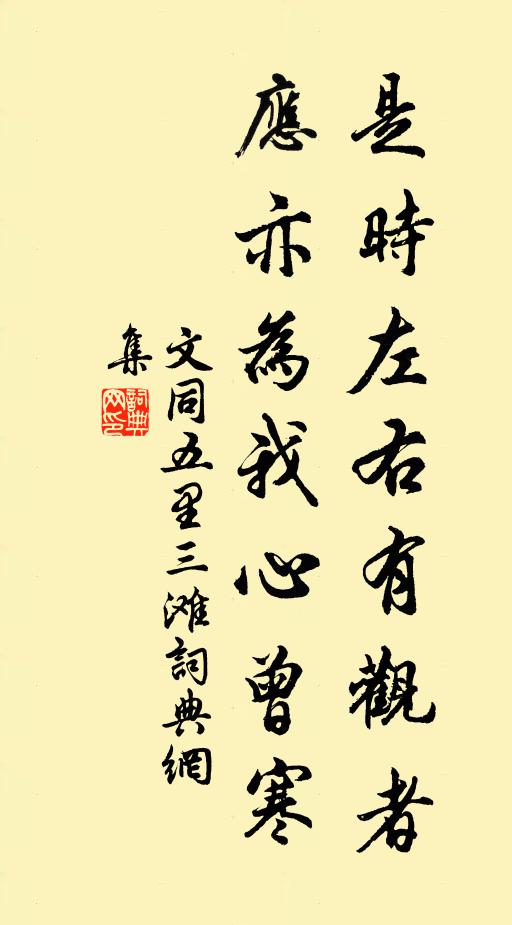 是時左右有觀者
應亦為我心曾寒
文同五里三灘詞典網
集
詞典網印